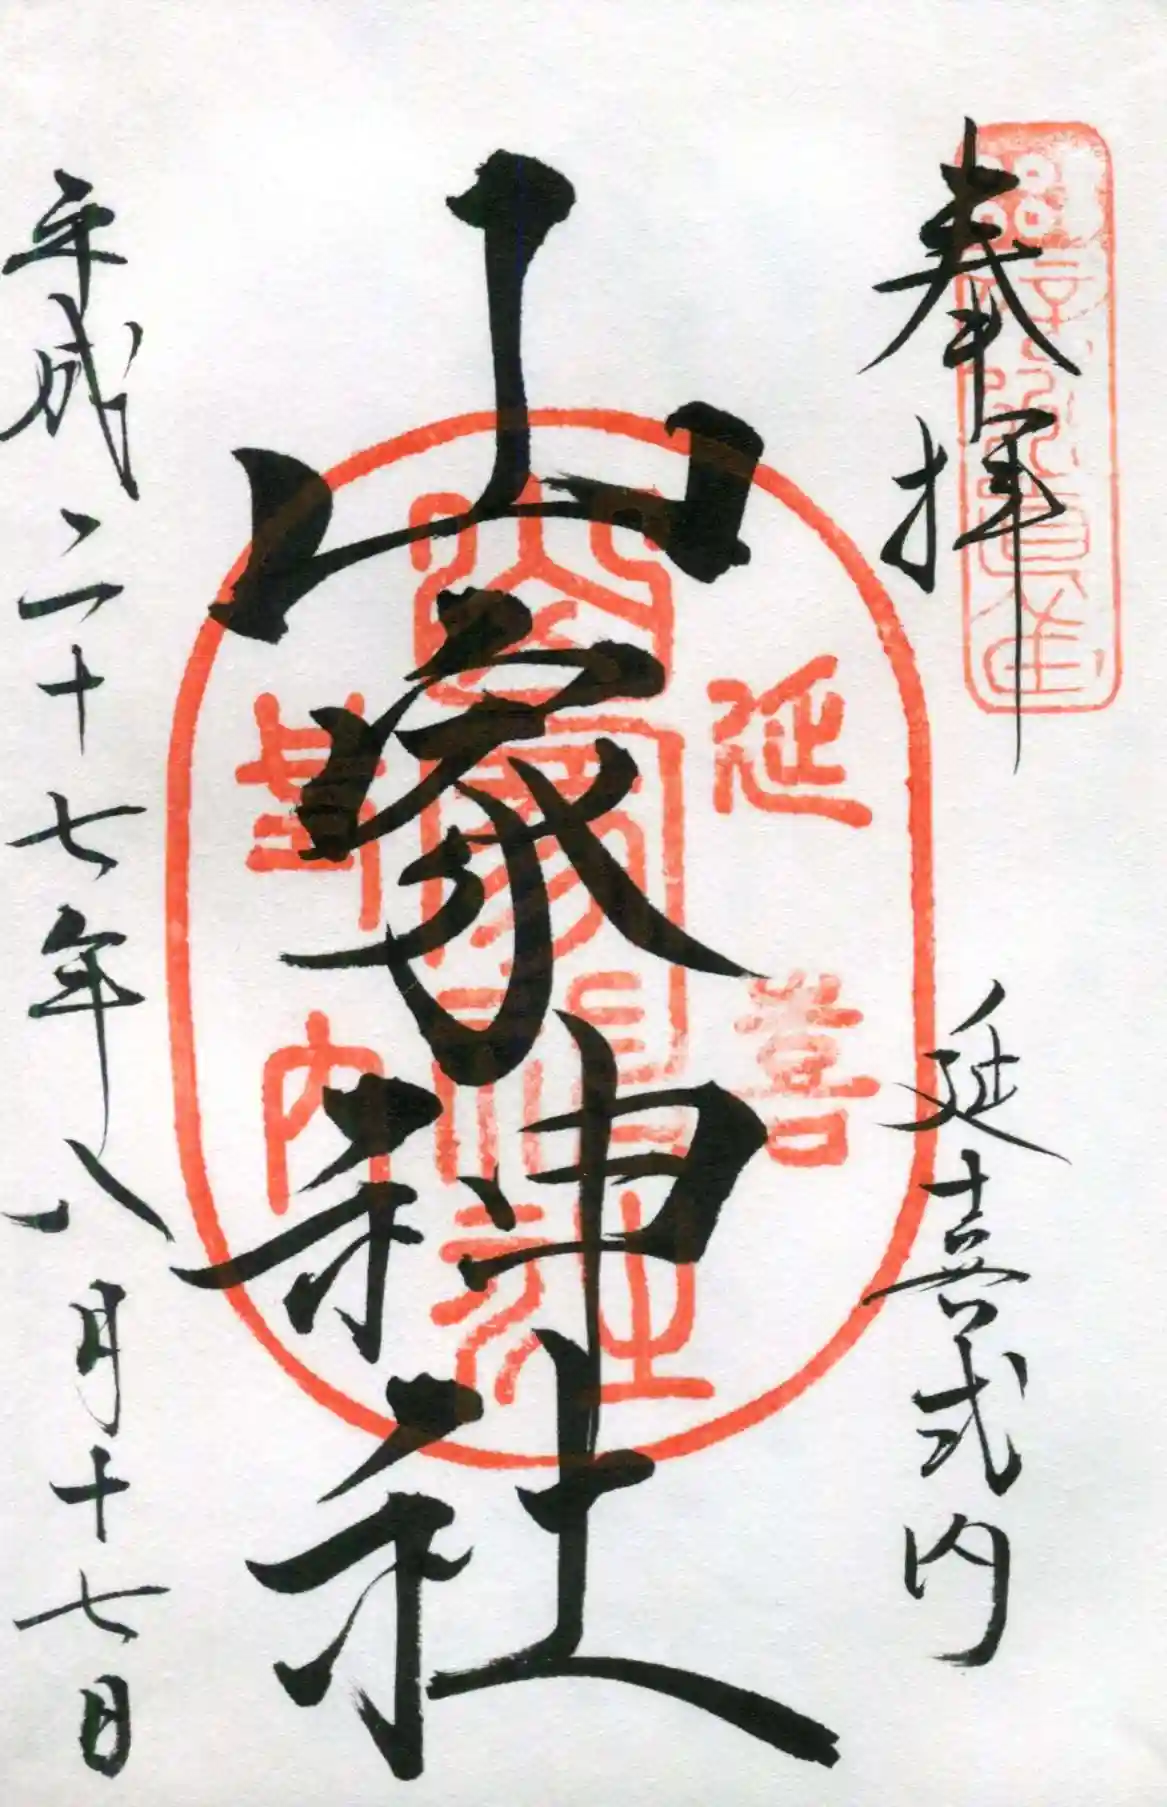 奉拝
延喜式内
山家神社
延喜
式内
平成二十七年八月十七日